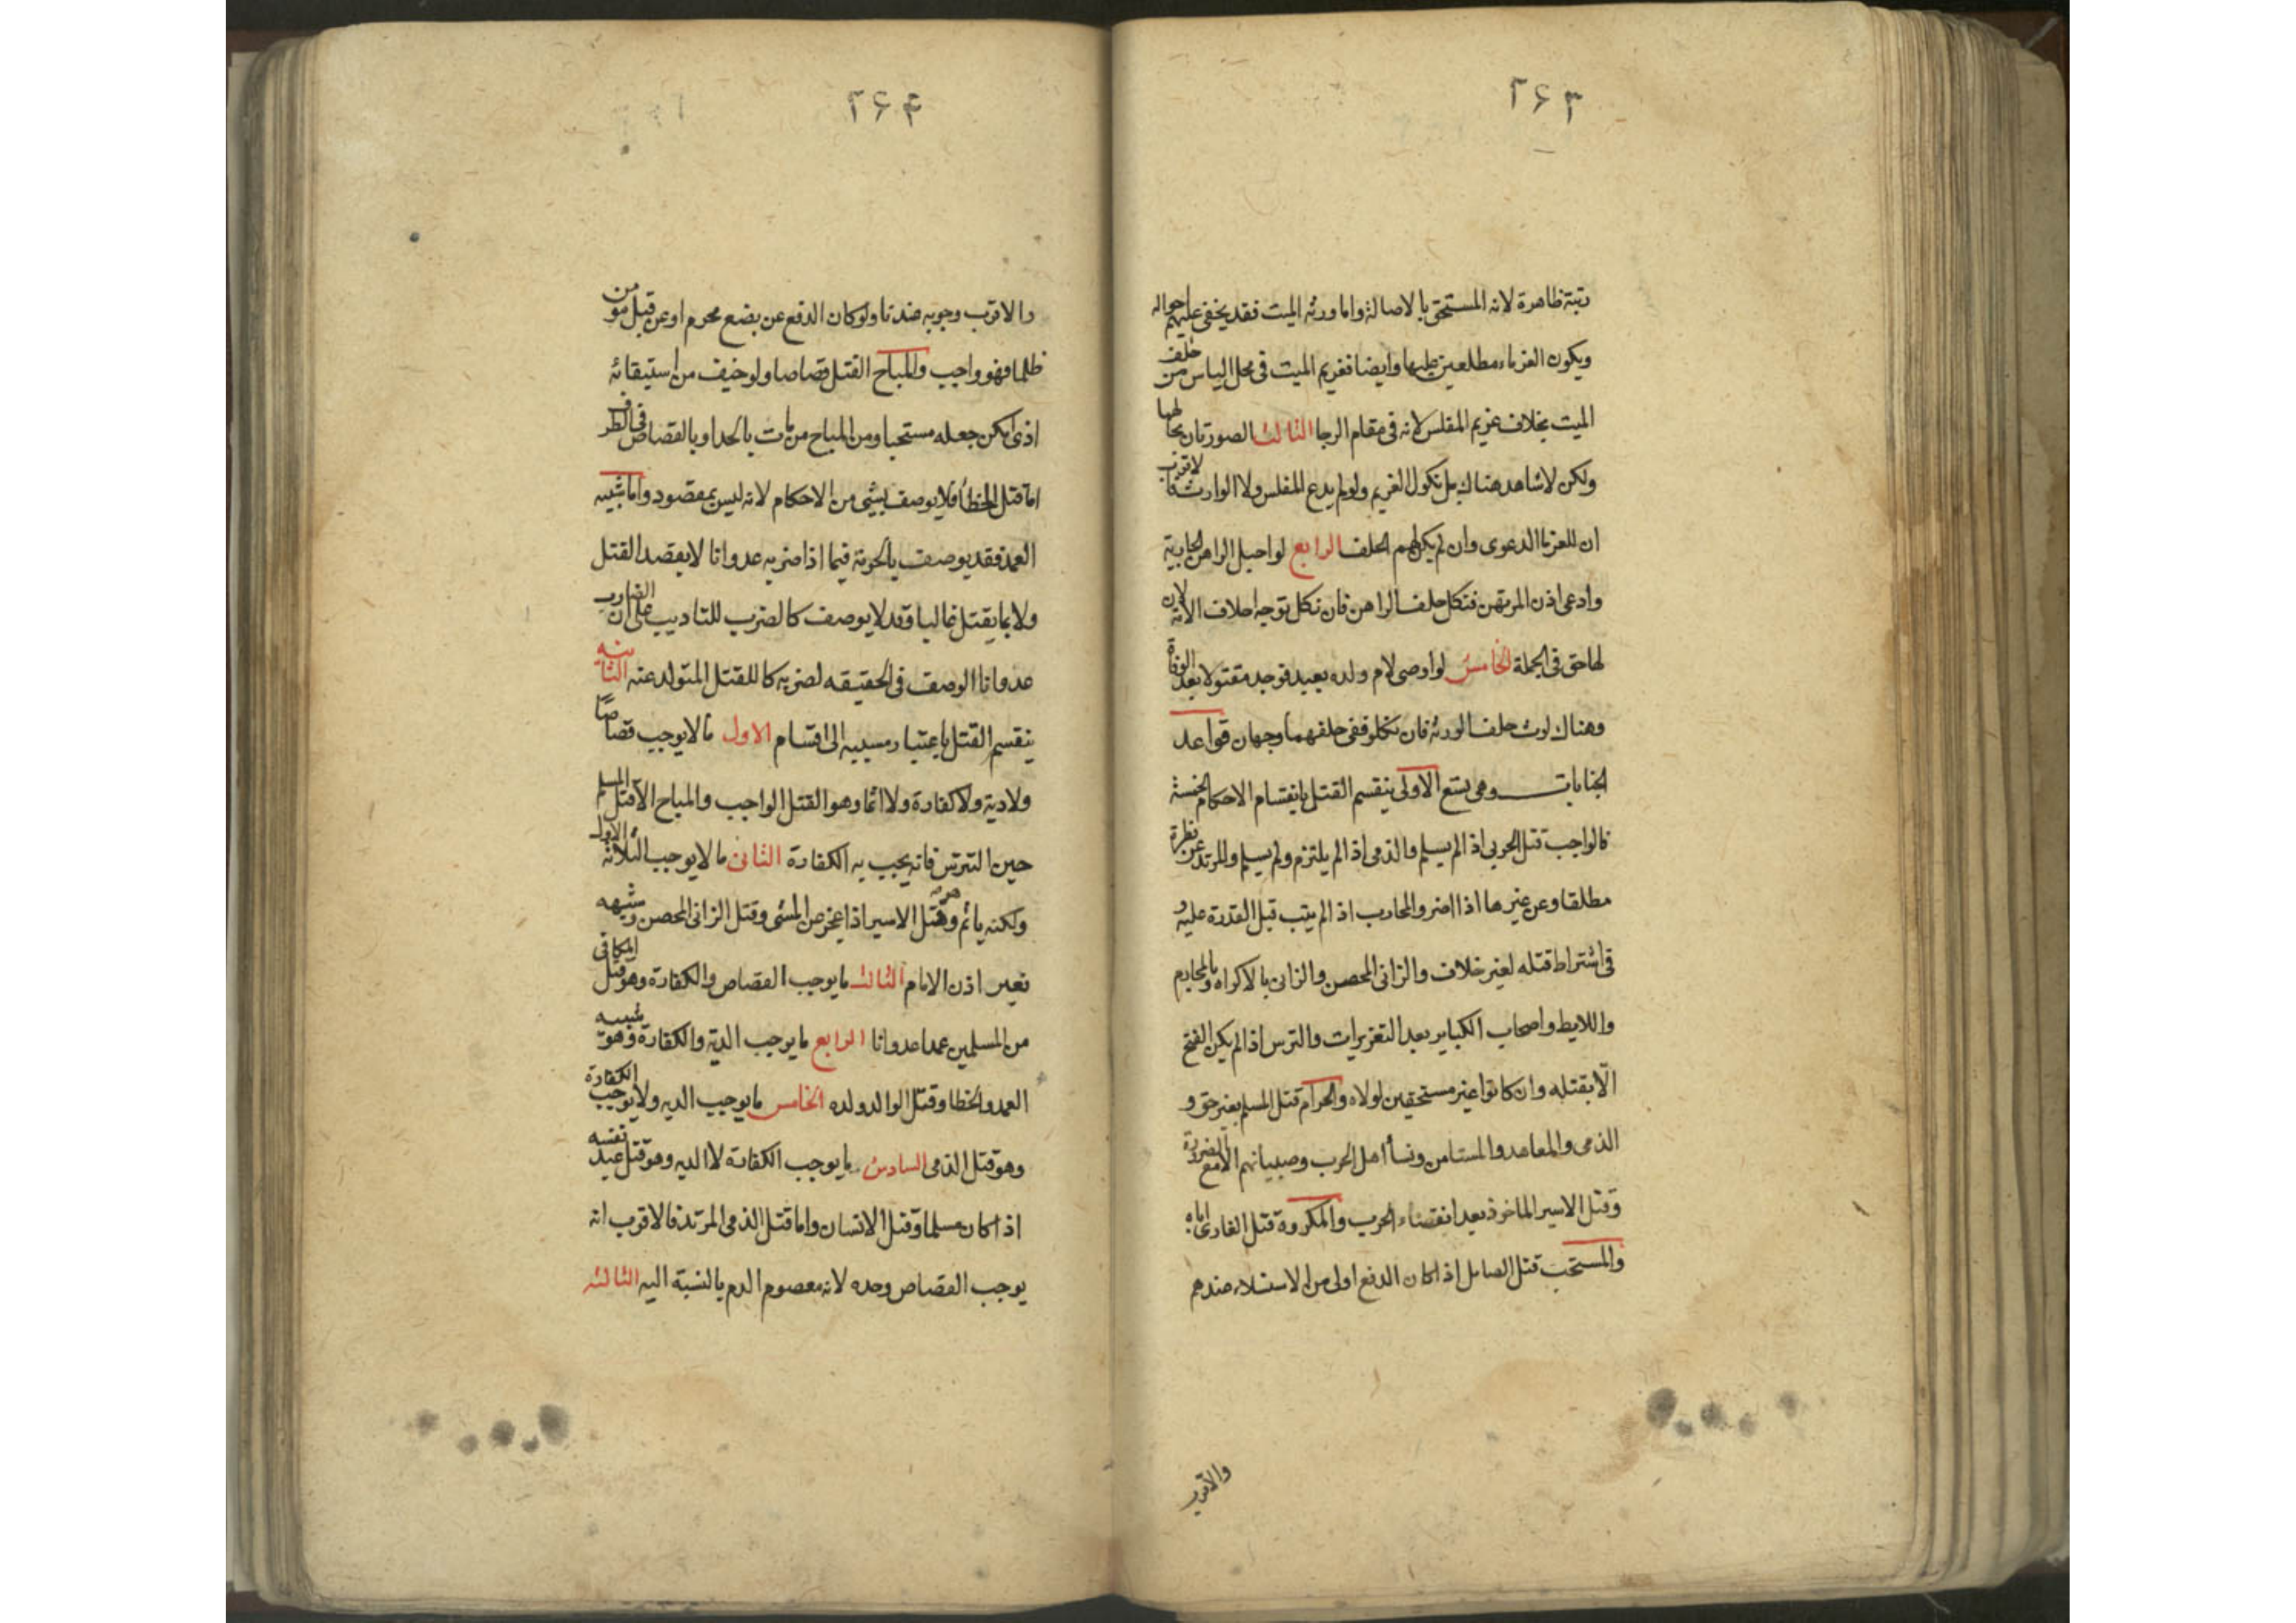 ۲۶۳
رتبة ظاهرة لانه المستحق بالاصالة واما ورثه الميت فقد يخفى عليهم احواله
ويكون الغرماء مطلعين عليها وايضا فغريم الميت فى محل الياس من حلف
الميت بخلاف غريم المفلس لانه فى مقام الرجا الثالث الصورتان بحالهما
ولكن لا شاهد هناك بل نكول الغريم ولو لم يدع المفلس ولا الوارث فالاقرب
ان للغرما الدعوى وان لم يكن لهم الحلف الرابع لو احبل الراهن الجارية
وادعى اذن المرتهن فنكل حلف الراهن فان نكل توجه احلاف الامة لان
لها حق فى الجملة الخامس لو اوصى لام ولده بعبد فوجد مقتولا بعد الوفاة
وهناك لوث حلف الورثه فان نكلو ففى حلفهما وجهان قواعد
الجنايات وهى تسع الاولى ينقسم القتل بانقسام الاحكام الخمسة
فالواجب قتل الحربى اذ الم يسلم والذمى اذ الم يلتزم ولم يسلم والمرتد عن فطرة
مطلقا وعن غيرها اذا اصر والمحارب اذ الم يتب قبل القدرة عليه و
فى اشتراط قتله لغير خلاف والزانى المحصن والزانى بالاكراه وبالمحارم
واللايط واصحاب الكباير بعد التعزيرات والترس اذ الم يكن الفتح
الّا بقتله وان كانوا غير مستحقين لولاه والحرام قتل المسلم بغير حق و
الذمى والمعاهد والمستامن ونسا اهل الحرب وصبيانهم الا مع الضرورة
وقتل الاسير الماخوذ بعد انقضاء الحرب والمكروه قتل الغازى اباه
والمستحب قتل الصايل اذ اكان الدفع اولى من الاستسلام عندهم
والاقرب
۲۶۴
والاقرب وجوبه عندنا ولو كان الدفع عن بضع محرم او عن قتل مومن
ظلما فهو واجب والمباح القتل قصاصا ولو خيف من استبقائه
اذى امكن جعله مستحبا ومن المباح من مات بالحد او بالقصاص فى الطرف
اما قتل الخطأ فلا يوصف بشئ من الاحكام لانه ليس بمقصود واما شبيه
العمد فقد يوصف بالحرمة فيما اذا ضربه عدوانا لا بقصد القتل
ولا بما يقتل غالبا وقد لا يوصف كالضرب للتاديب على ان الضارب
عدوانا الوصف فى الحقيقه لضربه كا للقتل المتولد عنه الثانيه
ينقسم القتل باعتبار مسببه الى اقسام الاول ما لا يوجب قصاصًا
ولا دية ولا كفارة ولا اثما وهو القتل الواجب والمباح الا قتل المسلم
حين التترس فانه يجب به الكفارة الثانى ما لا يوجب الثلاثة الاول
ولكنه ياثم وهو قتل الاسير اذا عجز عن المشى وقتل الزانى المحصن وشبهه
بغير اذن الامام الثالث ما يوجب القصاص والكفارة وهو قتل المكافى
من المسلمين عمدا عدوانا الرابع ما يوجب الدية والكفارة وهو شبيه
العمد والخطا وقتل الوالد ولده الخامس ما يوجب الديه ولا يوجب الكفارة
وهو قتل الذمى السادس ما يوجب الكفارة لا الديه وهو قتل عبد نفسه
اذ اكان مسلما وقتل الانسان واما قتل الذمى المرتد فالاقرب انه
يوجب القصاص وحده لانه معصوم الدم بالنسبة اليه الثالثه